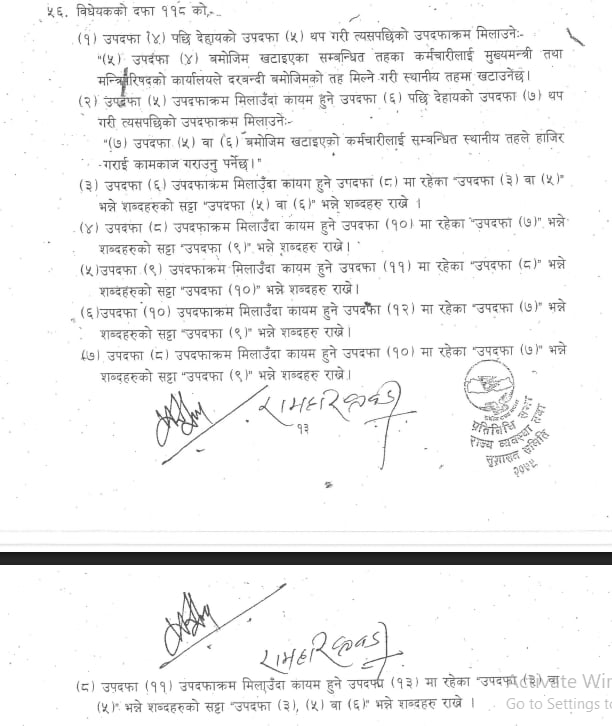 ५६. विधेयकको दफा ११८ को,-
(१) उपदफा (४) पछि देहायको उपदफा (५) थप गरी त्यसपछिको उपदफाक्रम मिलाउने:-
"(५) उपदफा (४) बमोजिम खटाइएका सम्बन्धित तहका कर्मचारीलाई मुख्यमन्त्री तथा
मन्त्रिपरिषदको कार्यालयले दरबन्दी बमोजिमको तह मिल्ने गरी स्थानीय तहमा खटाउनेछ।
(२) उपदफा (५) उपदफाक्रम मिलाउँदा कायम हुने उपदफा (६) पछि देहायको उपदफा (७) थप
गरी त्यसपछिको उपदफाक्रम मिलाउने:-
"(७) उपदफा (५) वा (६) बमोजिम खटाइएको कर्मचारीलाई सम्बन्धित स्थानीय तहले हाजिर
गराई कामकाज गराउनु पर्नेछ।"
(३) उपदफा (६) उपदफाक्रम मिलाउँदा कायम हुने उपदफा (८) मा रहेका "उपदफा (३) वा (५)"
भन्ने शब्दहरुको सट्टा "उपदफा (५) वा (६)" भन्ने शब्दहरु राख्ने ।
(४) उपदफा (८) उपदफाक्रम मिलाउँदा कायम हुने उपदफा (१०) मा रहेका "उपदफा (७)" भन्ने
शब्दहरुको सट्टा "उपदफा (९)" भन्ने शब्दहरु राख्ने।
(५)उपदफा (९) उपदफाक्रम मिलाउँदा कायम हुने उपदफा (११) मा रहेका "उपदफा (८)" भन्ने
शब्दहरुको सट्टा "उपदफा (१०)" भन्ने शब्दहरु राख्ने।
(६)उपदफा (१०) उपदफाक्रम मिलाउँदा कायम हुने उपदफा (१२) मा रहेका "उपदफा (७)" भन्ने
शब्दहरुको सट्टा "उपदफा (९)" भन्ने शब्दहरु राख्ने।
(७) उपदफा (८) उपदफाक्रम मिलाउँदा कायम हुने उपदफा (१०) मा रहेका "उपदफा (७)" भन्ने
शब्दहरुको सट्टा "उपदफा (९)" भन्ने शब्दहरु राख्ने।
१३
प्रतिनिधि सभा
राज्य व्यवस्था तथा
सुशासन समिति
(८) उपदफा (११) उपदफाक्रम मिलाउँदा कायम हुने उपदफा (१३) मा रहेका "उपदफा (३) वा
(५)" भन्ने शब्दहरुको सट्टा "उपदफा (३), (५) वा (६)" भन्ने शब्दहरु राख्ने ।
Activate Win
Go to Settings t